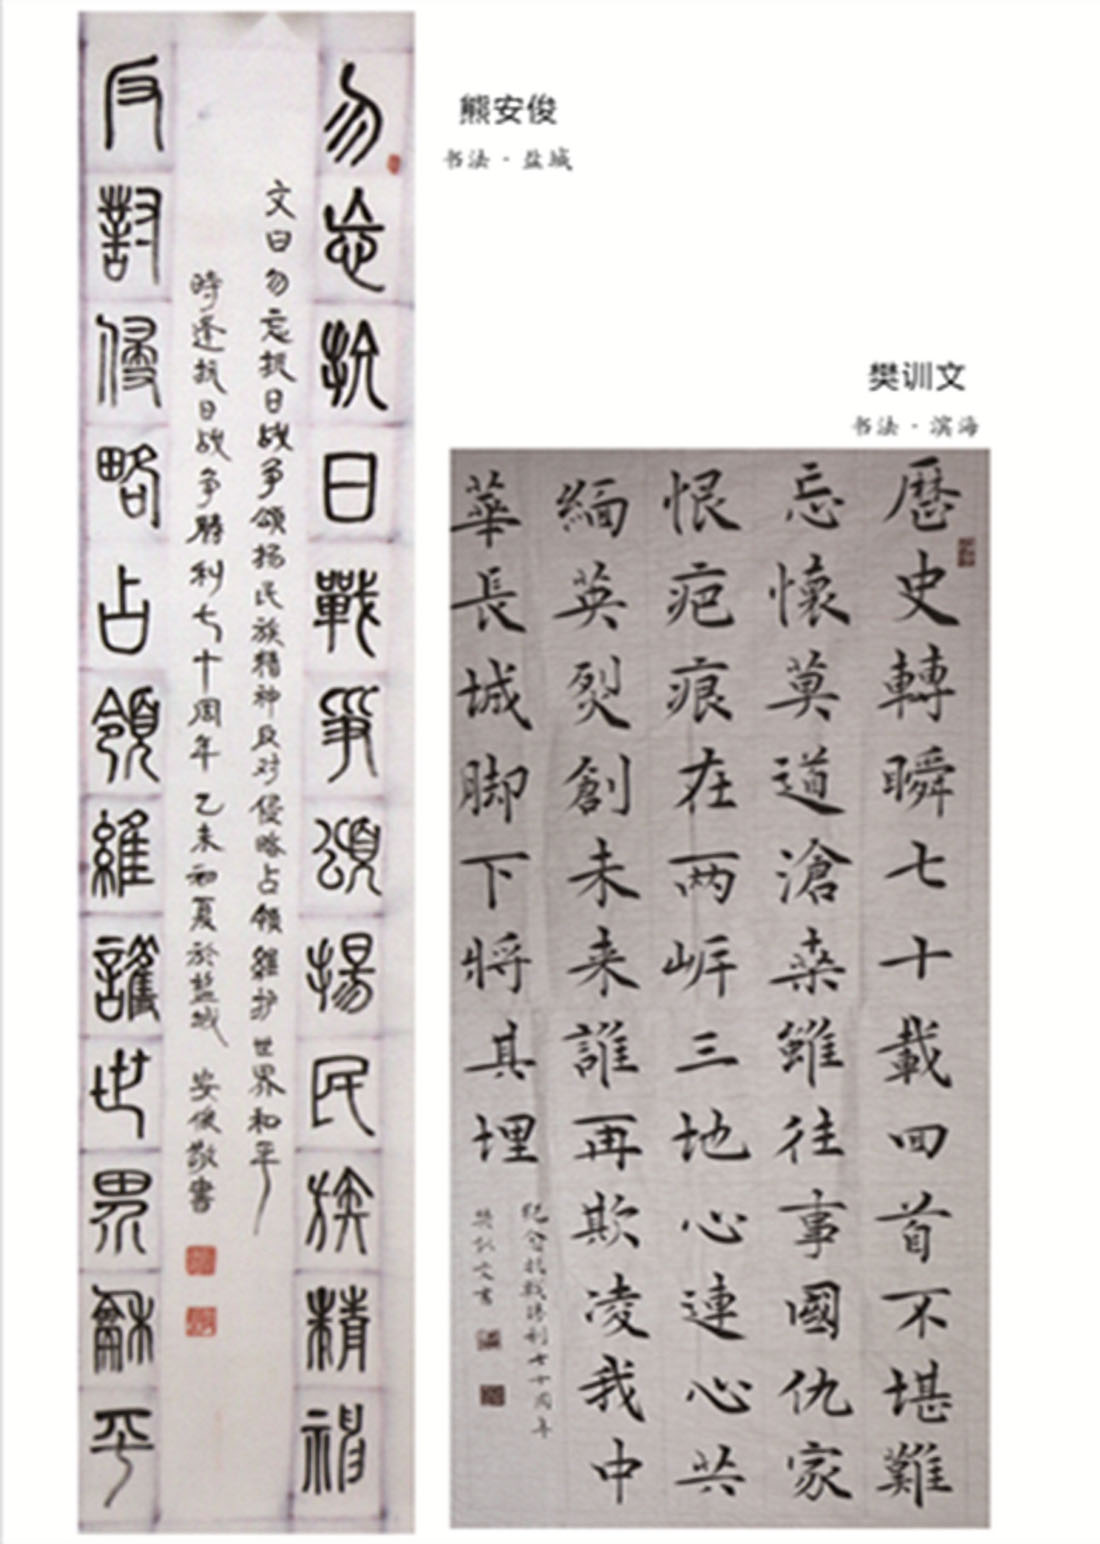 熊安俊
书法·盐城
勿忘抗日戰爭頌揚民族精神
文曰勿忘抗日战争颂扬民族精神反对侵略占领維护世界和平
時逢抗日战争勝利七十周年乙未初夏於盐城 安俊敬書
反對侵略占領維護世界龢平
樊训文
书法·滨海
歷史轉瞬七十載回首不堪難
忘懷莫道滄桑雖往事國仇家
恨疤痕在兩岸三地心連心共
緬英烈創未来誰再欺凌我中
華長城脚下將其埋
紀念抗战勝利七十周年
樊训文書